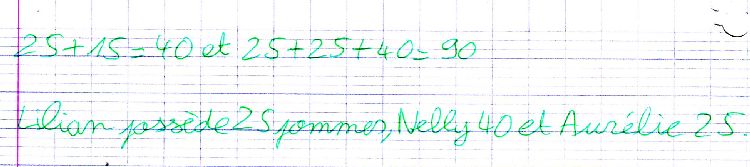 25+15=40 et 25+25+40=90
Lilian possède 25 pommes, Nelly 40 et Aurélie 25.